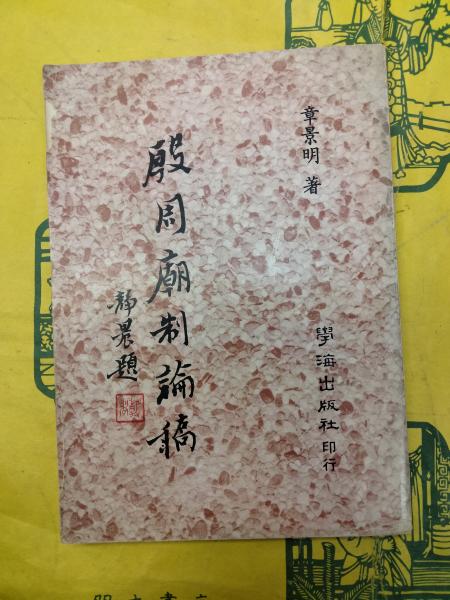 章景明 著
殷周廟制論稿
靜農題
學海出版社印行